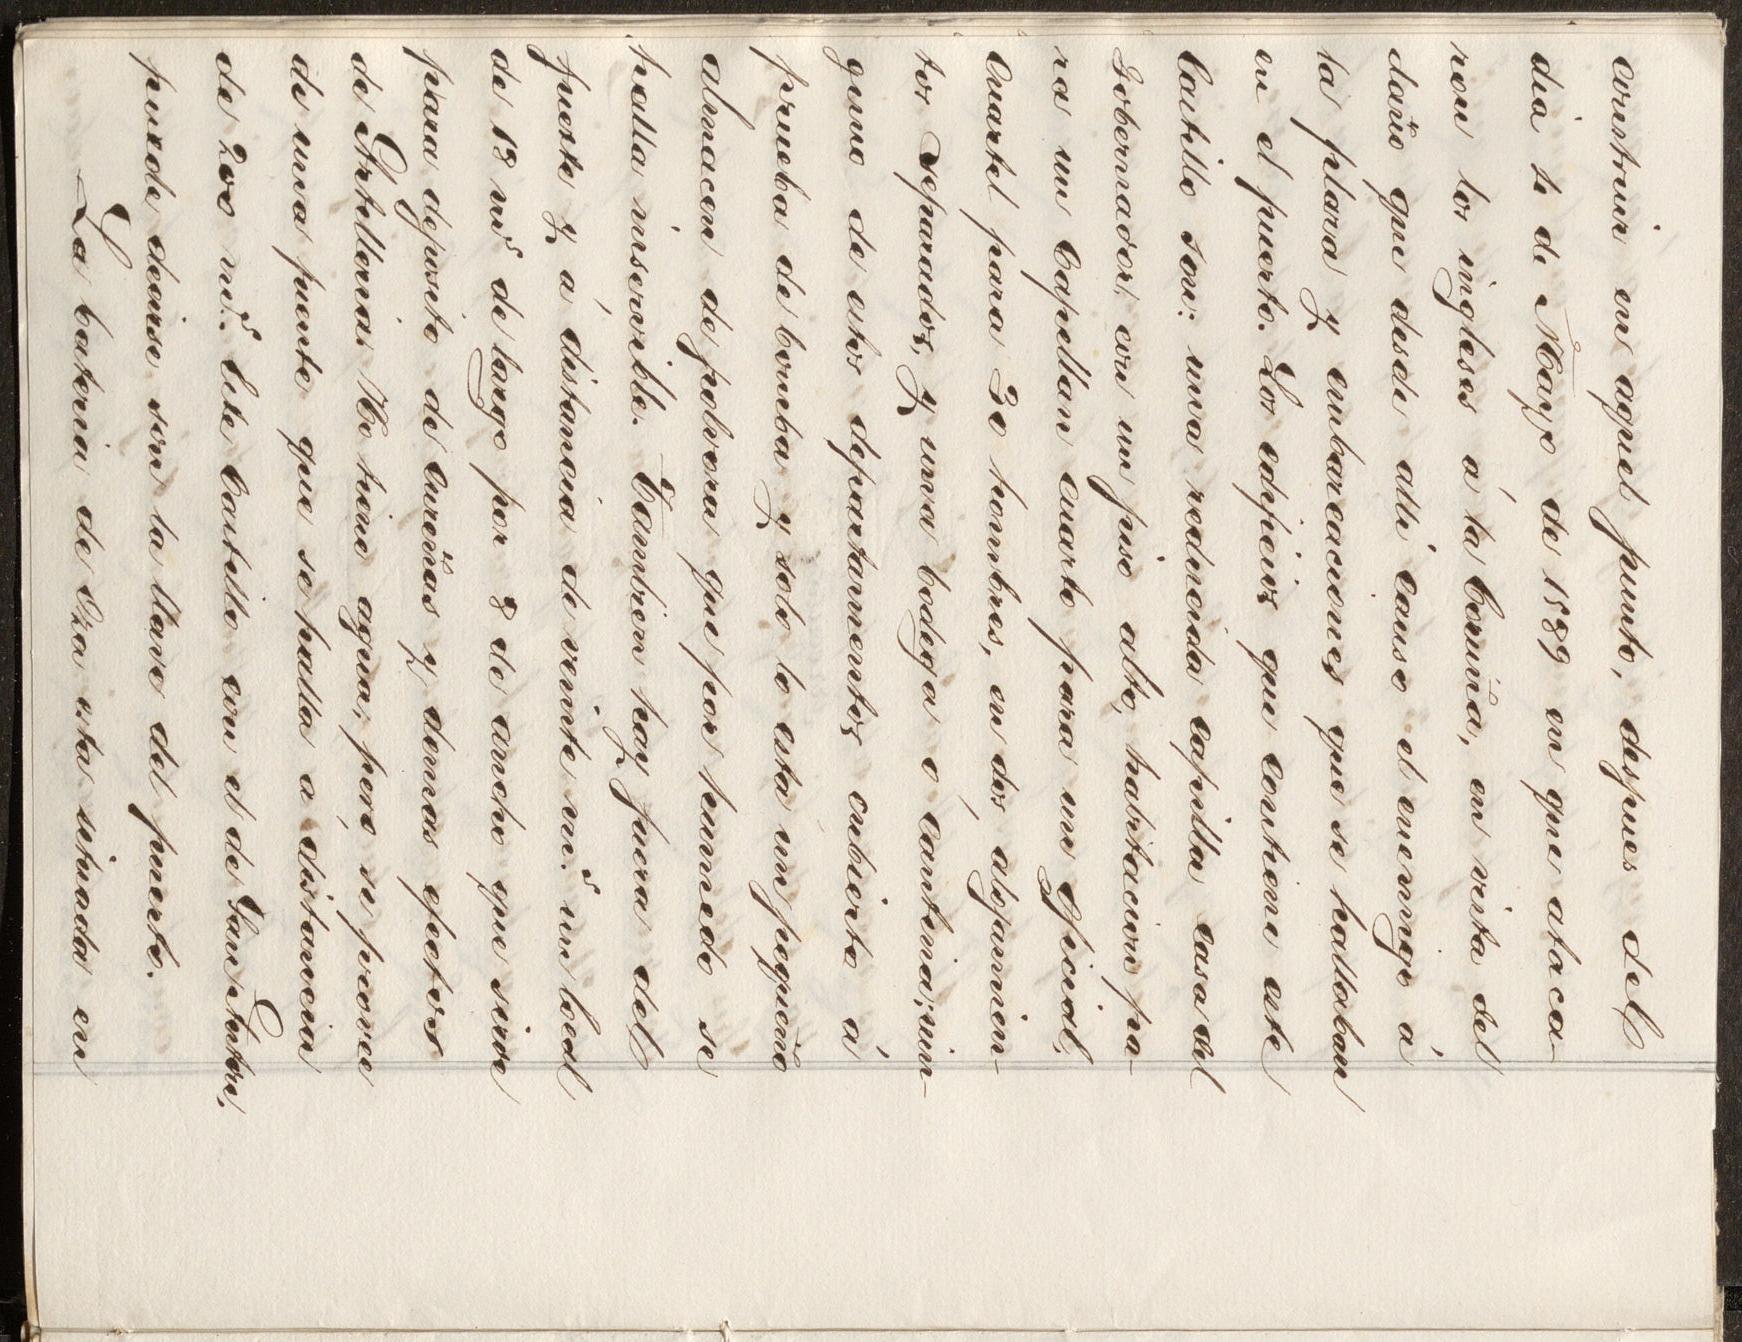 construir en aquel punto, despues del
dia 4 de Mayo de 1589 en que ataca-
ron los ingleses á la Coruña, en vista del
daño que desde alli causó el enemigo á
la plaza y embarcaciones que se hallaban
en el puerto. Los edificios que contiene este
Castillo son: una reducida capilla casa del
Gobernador, con un piso alto, habitacion pa-
ra un Capellan cuarto para un Oficial,
Cuartel para 30 hombres, en dos alojamien-
tos separados, y una bodega ó cantina; nin-
guno de estos departamentos cubierto á
prueba de bomba y solo lo está un pequeño
almacen de polvora que por humedo se
halla inservible. Tambien hay fuera del
fuerte y á distancia de veinte m.s un local
de 13 m.s de largo por 8 de ancho que sirve
para deposito de cureñas y demas efectos
de Artilleria. No tiene agua, pero se provee
de una fuente que se halla á distancia
de 200 m.s Este Castillo con el de San Anton,
puede decirse son la llave del puerto.
La bateria de Oza esta situada en